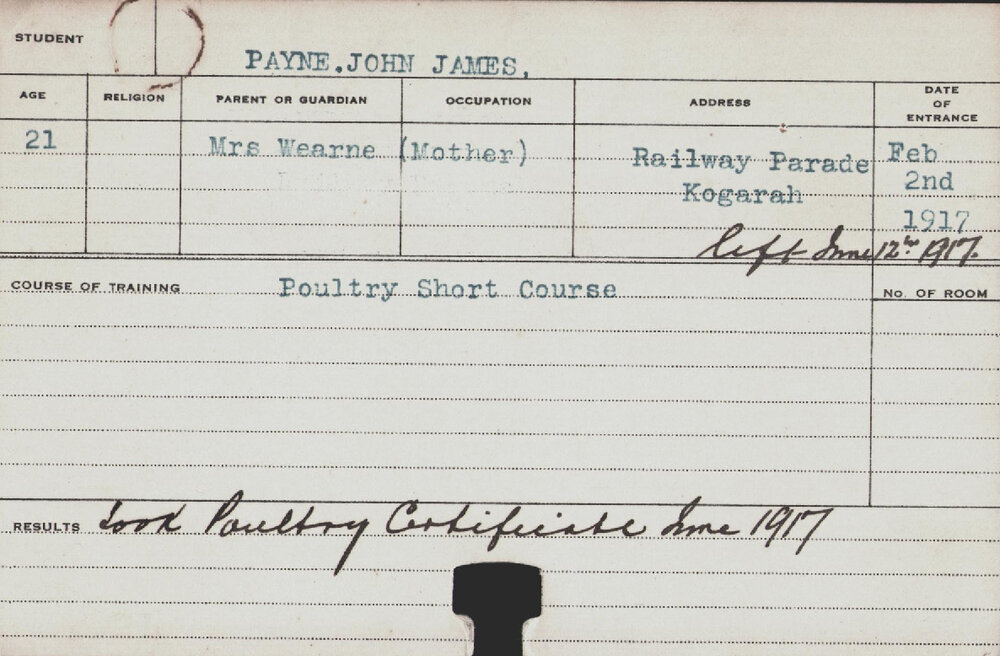 STUDENT
PAYNE.JOHN JAMES,
AGE RELIGION PARENT OR GUARDIAN OCCUPATION ADDRESS DATE OF ENTRANCE
21 Mrs Wearne (Mother) Railway Parade Feb
Kogarah 2nd
1917
left June 12th 1917.
COURSE OF TRAINING Poultry Short Course No. OF ROOM
RESULTS Took Poultry Certificate June 1917